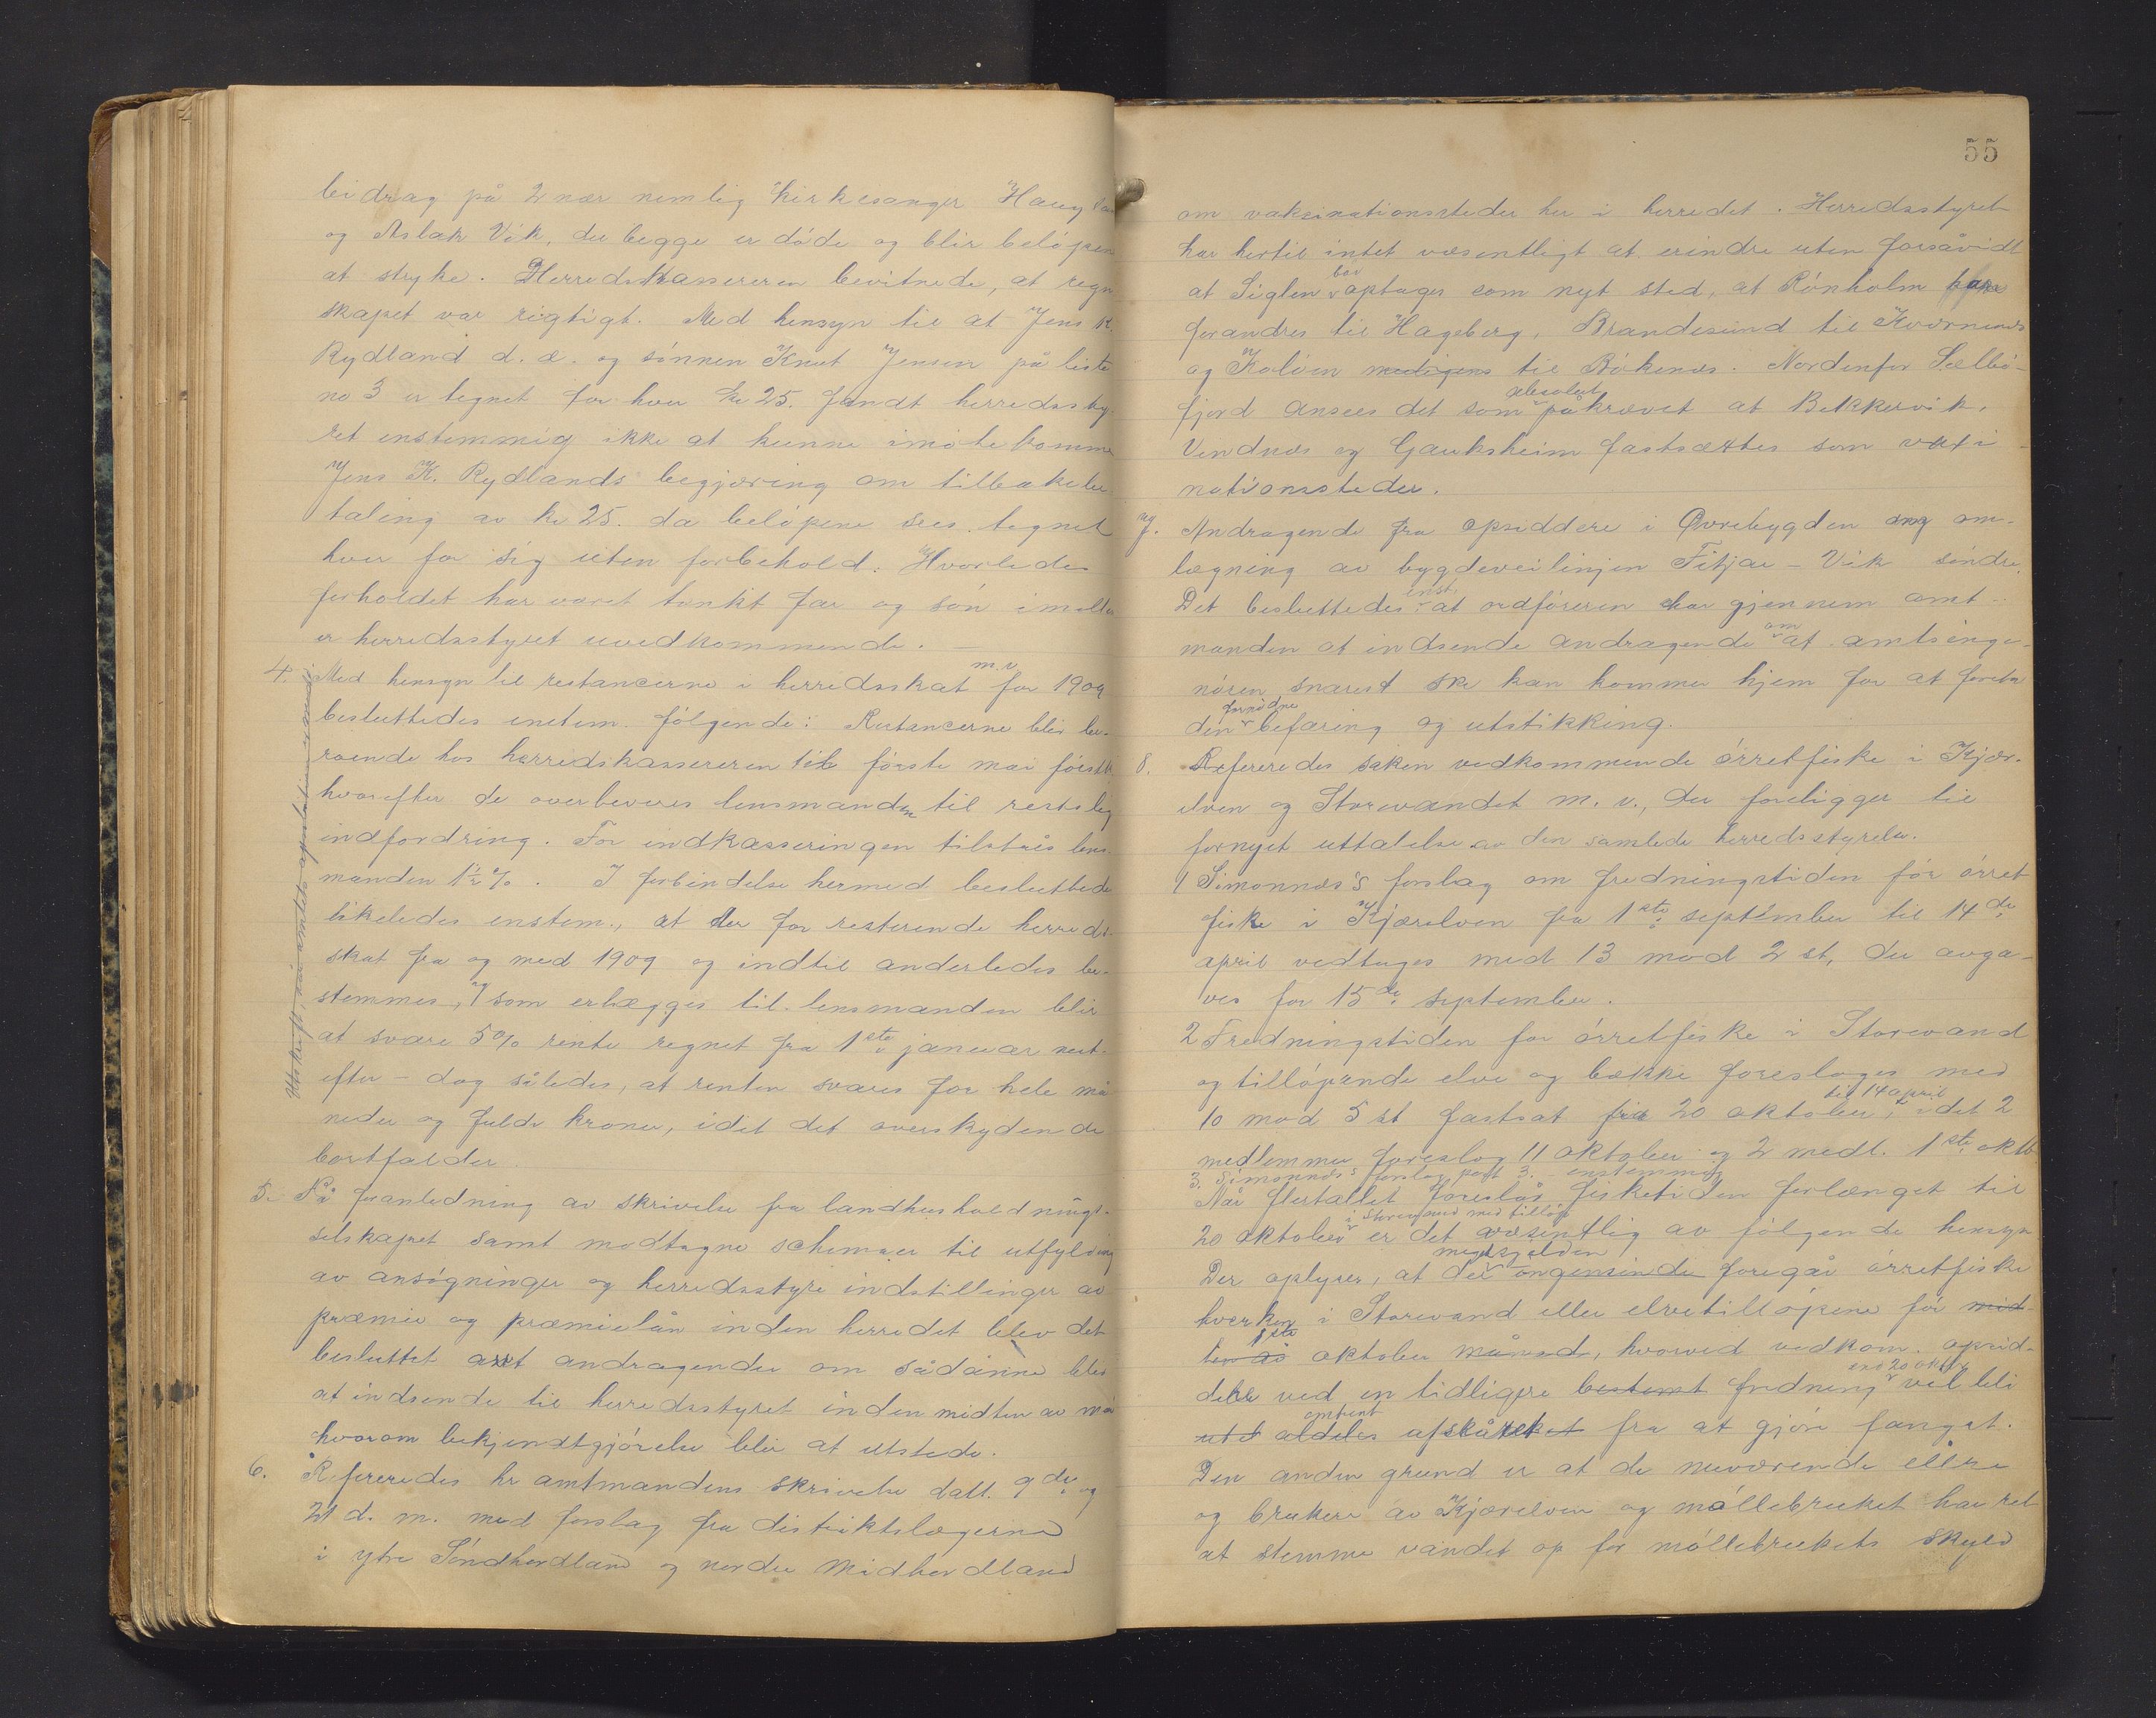 bidrag på 2 nær nemlig kirkesanger Haugla
og Aslak Vik, der begge er døde og blir beløpene
at stryke. Herredskassereren bevitnede, at regn
skapet var rigtigt. Med hensyn til at Jens K.
Rydland d. æ. og sønnen Knut Jensen på liste
no 3 er tegnet for hver kr 25. fandt herredssty-
ret enstemmig ikke at kunne imøtekomme
Jens K. Rydlands begjæring om tilbakebe-
taling av kr 25. da beløpene sees tegnet
hver for sig uten forbehold. Hvorledes
forholdet har været tænkt far og søn imellem
er herredsstyret uvedkommende. —
4. Med hensyn til restancerne i herredsskat m.v. for 1909
besluttedes enstem. følgende: Restancerne blir be-
roende hos herredskassereren til første mai førstk.
hvorefter de overleveres lensmanden til restslig
indfordring. For indkasseringen tilståes lens-
manden 1½ %. I forbindelse hermed besluttedes
likeledes enstem., at der for resterende herreds-
skat fra og med 1909 og indtil anderledes be-
stemmes, som erlægges til lensmanden blir
at svare 5% rente regnet fra 1ste januar næst-
efter - dog således, at renten svares for hele må
neder og fulde kroner, idet det overskydende
bortfalder.
5. På foranledning av skrivelse fra landhusholdnings-
selskapet samt modtagne schemaer til utfylding
av ansøgninger og herredsstyreindstillinger av
præmie og præmielån inden herredet blev det
besluttet at andragender om sådanne blir
at indsende til herredsstyret inden midten av mai
hvorom bekjendtgjørelse blir at utstede.
6. Refereredes hr amtmandens skrivelse datt. 9de og
21 d. m. med forslag fra distriktslægerne
i ytre Søndhordland og nordre Midhordland
55
om vaksinationssteder her i herredet. Herredsstyret
har hertil intet væsentligt at erindre uten forsåvidt
at Siglen bør optages som nyt sted, at Rønholm
forandres til Hageberg, Brandesund til Kværnenes
og Koløen til Bøkenes. Nordenfor Selbø-
fjord ansees det som absolut påkrævet at Bekkervik,
Vendnes og Gauksheim fastsættes som vaxi-
nationssteder.
7. Andragende fra opsiddere i Øvrebygden ang om-
lægning av bygdeveilinjen Fitjar - Vik søndre.
Det besluttedes enst. at ordføreren har gjennem amt-
manden at indsende andragende om at amtsinge-
niøren snarest ske kan kommer hjem for at foreta
den fornødne befaring og utstikking.
8. Refereredes saken vedkommende ørretfiske i Kjær-
elven og Storevandet m. v., der foreligger til
fornyet uttalelse av den samlede herredsstyrelse.
1 Simonnæs's forslag om fredningstiden før ørret
fiske i Kjærelven fra 1ste september til 14de
april vedtages med 13 mod 2 st, der avga-
ves for 15de september.
2 Fredningstiden for ørretfiske i Storevand
og tilløpende elve og bække foreslages med
10 mod 5 st fastsat fra 20 oktober til 14 april, idet 2
medlemmer foreslog 11 oktober og 2 medl. 1ste oktb
3. Simonnæs's forslag post 3. enstemmig
Når flertallet foreslås fisketiden forlænget til
20 oktober i Storevand med tilløp er det væsentlig av følgende hensyn
Der oplyses, at der meget sjelden ongensinde foregår ørretfiske
hverken i Storevand eller elvetilløpene før mid-
ten av 1ste oktober måned, hvorved vedkom. opsid-
dere ved en tidligere bestemt fredning end 20 oktbr vil bli
omtrent aldeles afskåret fra at gjøre fangst.
Den anden grund er at de nuværende eiere
og brukere av Kjærelven og møllebruket har ret
at stemme vandet op for møllebrukets skyld